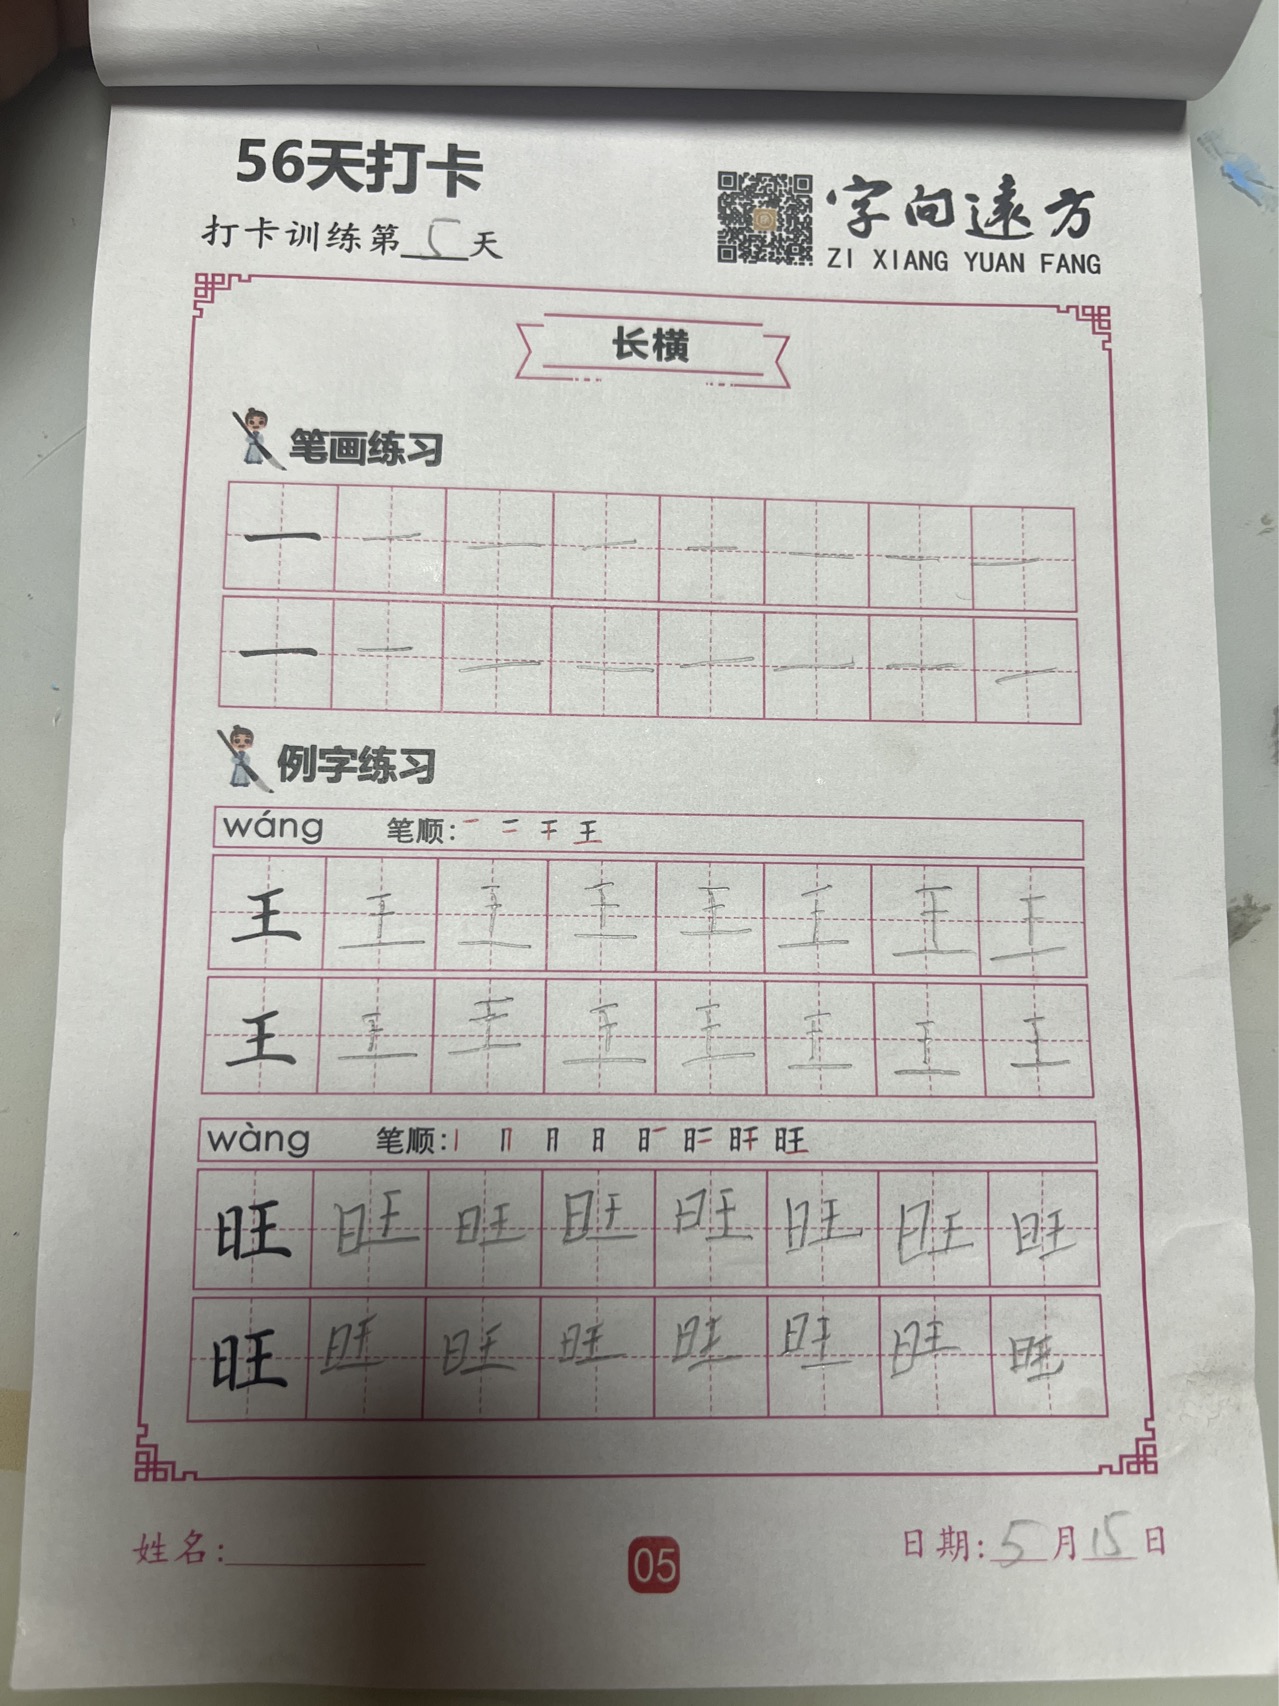 56天打卡
打卡训练第5天
字向遠方
ZI XIANG YUAN FANG
长横
笔画练习
一 一 一 一 一 一 一 一
一 一 一 一 一 一 一 一
例字练习
wáng 笔顺: 一 二 干 王
王 王 王 王 王 王 王 王
王 王 王 王 王 王 王 王
wàng 笔顺:
旺 旺 旺 旺 旺 旺 旺 旺
旺 旺 旺 旺 旺 旺 旺 旺
姓名:
05
日期:5月15日